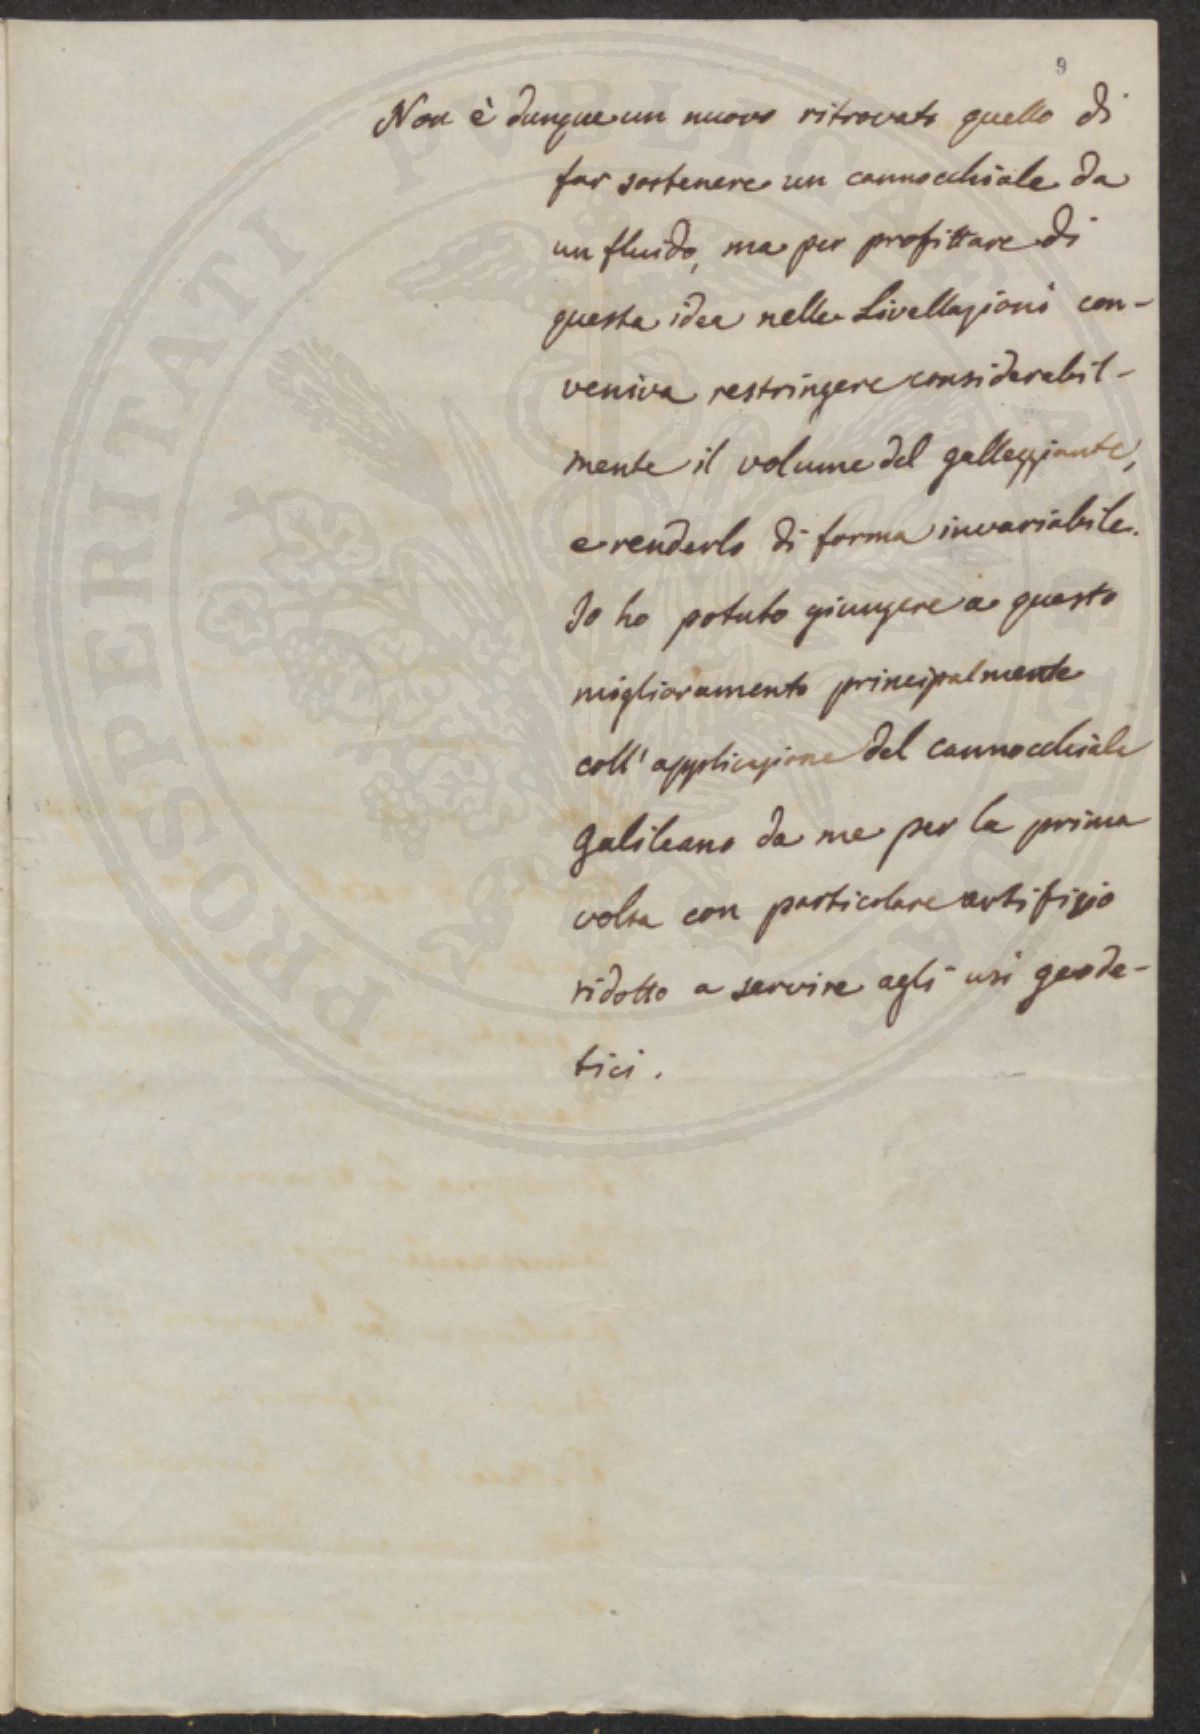 9
Non è dunque un nuovo ritrovato quello di
far sostenere un cannocchiale da
un fluido, ma per profittare di
questa idea nelle Livellazioni con-
veniva restringere considerabil-
mente il volume del galleggiante,
e renderlo di forma invariabile.
Io ho potuto giungere a questo
miglioramento principalmente
coll' applicazione del cannocchiale
Galileano da me per la prima
volta con particolare artifizio
ridotto a servire agli usi geode-
tici.
PROSPERITATI PUBLICAE